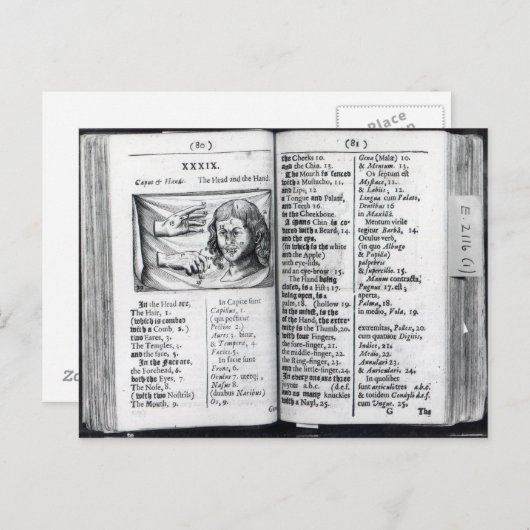 Place
(80)
XXXIX.
Caput & Manus. The Head and the Hand.
39
In the Head are,
The Hair, 1.
(which is combed
with a Comb, 2.)
two Eares, 3.
The Temples, 4.
and the face, 5.
In the Face are,
the Forehead, 6.
both the Eyes, 7.
The Nose, 8.
(with two Nostrils)
The Mouth, 9.
In Capite sunt
Capillus, 1.
(qui pectitur
Pectine 2.)
Aures 3. binæ,
& Tempora, 4.
Facies, 5.
In facie sunt
Frons, 6.
Oculus 7. uterq;,
Nasus 8.
(duabus Naribus)
Os, 9.
(81)
the Cheeks 10.
and the Chin. 13.
The Mouth is fenced
with a Mustacho, 11.
and Lips, 12.
a Tongue and Palate,
and Teeth 16.
in the Cheekbone.
A mans Chin is co-
vered with a Beard, 14.
and the eye,
(in which is the white
and the Apple)
with eye-lids,
and an eye-brow 15.
The Hand being
closed, is a Fist; 17.
being open, is a
palm, 18. (hollow 19.
in the midst, is the
of the Hand, the extre-
mity is the Thumb, 20.
with four Fingers,
the fore-finger, 21.
the middle-finger, 22.
the Ring-finger, 23.
and the little-finger. 24.
In every one are three
joynts a.b.c. (d.e.f.
and as many knuckles
with a Nayl, 25.
Genæ (Malæ) 10.
& Mentum. 13.
Os septum est
Mystace, 11.
& Labiis, 12.
Lingua cum Palato,
Dentibus 16
in Maxillâ.
Mentum virile
tegitur Barbâ, 14.
Oculus verò,
(in quo Albugo
& Pupilla)
palpebris
& supercilio. 15.
Manus contracta,
Pugnus 17. est;
aperta,
Palma, 18.
in medio, Vola, 19.
extremitas, Pollex, 20.
cum quatuor Digitis,
Indice, 21.
Medio, 22.
Annulari 23.
& Auriculari. 24.
In quolibet
sunt articuli tres a.b.c.
& totidem Condyli d.e.f.
cum Ungue. 25.
G The
E.2116 (1)